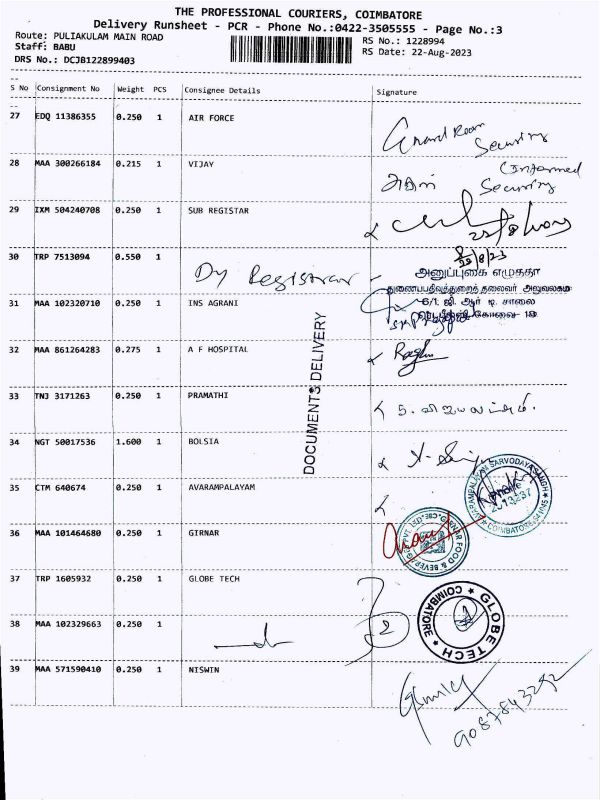 THE PROFESSIONAL COURIERS, COIMBATORE
Delivery Runsheet - PCR - Phone No.:0422-3505555 - Page No.:3
Route: PULIAKULAM MAIN ROAD
RS No.: 1228994
Staff: BABU
RS Date: 22-Aug-2023
DRS No.: DCJB122899403
S No Consignment No Weight PCS Consignee Details Signature
27 EDQ 11386355 0.250 1 AIR FORCE
Security
28 MAA 300266184 0.215 1 VIJAY
Security
29 IXM 504240708 0.250 1 SUB REGISTAR
22/8/2023
30 TRP 7513094 0.550 1
Dy Registrar
22/8/23
அனுப்புகை எழுத்தர்
துணைப்பதிவுத்துறைத் தலைவர் அலுவலகம்
6/1. ஜி. ஆர் டி. சாலை
கோவை 18
31 MAA 102320710 0.250 1 INS AGRANI
32 MAA 861264283 0.275 1 A F HOSPITAL
Raghu
DOCUMENTS DELIVERY
33 TNJ 3171263 0.250 1 PRAMATHI
34 NGT 50017536 1.600 1 BOLSIA
35 CTM 640674 0.250 1 AVARAMPALAYAM
36 MAA 101464680 0.250 1 GIRNAR
GIRNAR FOOD & BEVERAGES PVT. LTD. CBE.
37 TRP 1605932 0.250 1 GLOBE TECH
GLOBE TECH
COIMBATORE
38 MAA 102329663 0.250 1
2
39 MAA 571590410 0.250 1 NISWIN
9087843292